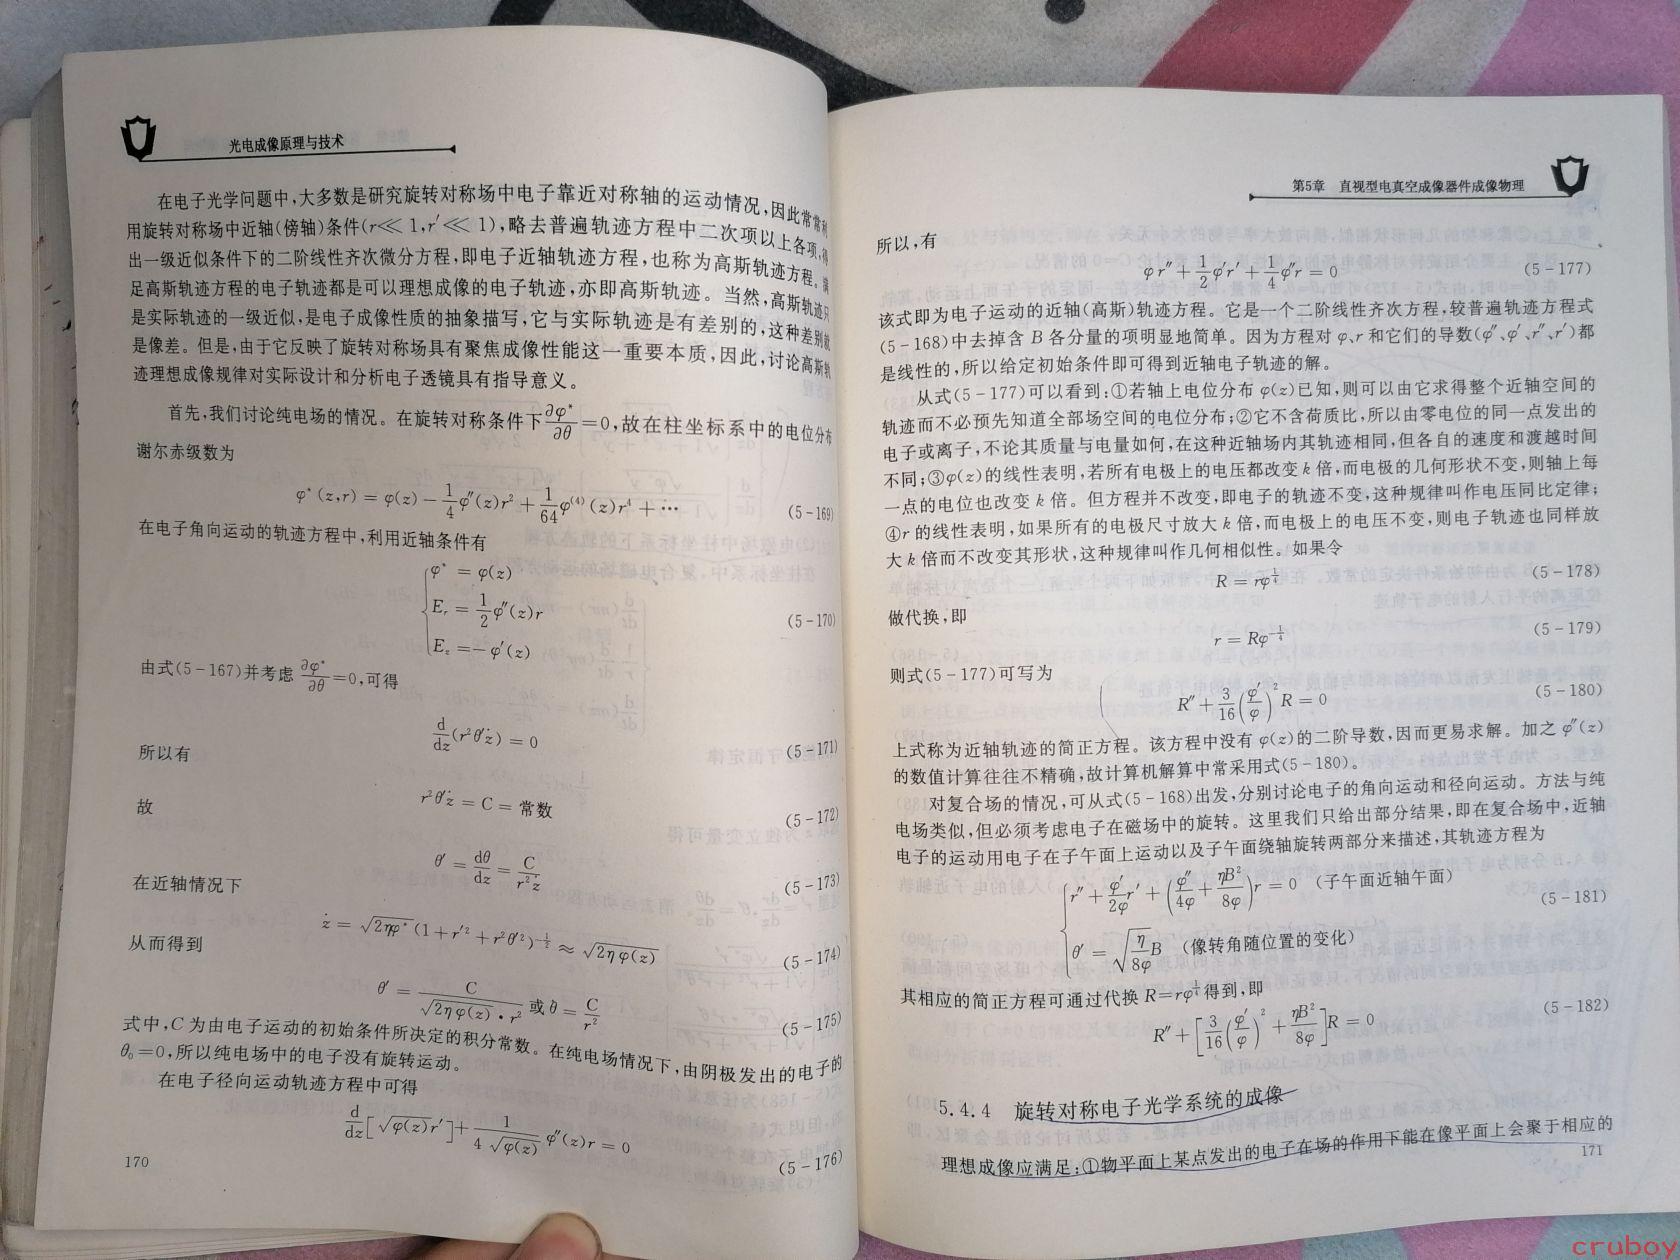 光电成像原理与技术
在电子光学问题中,大多数是研究旋转对称场中电子靠近对称轴的运动情况,因此常常利
用旋转对称场中近轴(傍轴)条件(r≪1,r′≪1),略去普遍轨迹方程中二次项以上各项,得
出一级近似条件下的二阶线性齐次微分方程,即电子近轴轨迹方程,也称为高斯轨迹方程。满
足高斯轨迹方程的电子轨迹都是可以理想成像的电子轨迹,亦即高斯轨迹。当然,高斯轨迹只
是实际轨迹的一级近似,是电子成像性质的抽象描写,它与实际轨迹是有差别的,这种差别就
是像差。但是,由于它反映了旋转对称场具有聚焦成像性能这一重要本质,因此,讨论高斯轨
迹理想成像规律对实际设计和分析电子透镜具有指导意义。
首先,我们讨论纯电场的情况。在旋转对称条件下∂φ*/∂θ=0,故在柱坐标系中的电位分布
谢尔赤级数为
φ*(z,r) = φ(z) − 1/4 φ″(z)r² + 1/64 φ⁽⁴⁾(z)r⁴ + ⋯ (5-169)
在电子角向运动的轨迹方程中,利用近轴条件有
φ* = φ(z)
E_r = 1/2 φ″(z)r (5-170)
E_z = − φ′(z)
由式(5-167)并考虑 ∂φ*/∂θ=0,可得
d/dz(r²θ′ż) = 0 (5-171)
所以有
r²θ′ż = C = 常数 (5-172)
故
θ′ = dθ/dz = C/(r²ż) (5-173)
在近轴情况下
ż = √(2ηφ*) (1 + r′² + r²θ′²)^(-1/2) ≈ √(2ηφ(z)) (5-174)
从而得到
θ′ = C/(√(2ηφ(z)) · r²) 或 θ̇ = C/r² (5-175)
式中,C为由电子运动的初始条件所决定的积分常数。在纯电场情况下,由阴极发出的电子的
θ̇₀=0,所以纯电场中的电子没有旋转运动。
在电子径向运动轨迹方程中可得
d/dz[√φ(z) r′] + 1/(4√φ(z)) φ″(z)r = 0 (5-176)
170
第5章 直视型电真空成像器件成像物理
所以,有
φr″ + 1/2 φ′r′ + 1/4 φ″r = 0 (5-177)
该式即为电子运动的近轴(高斯)轨迹方程。它是一个二阶线性齐次方程,较普遍轨迹方程式
(5-168)中去掉含 B 各分量的项明显地简单。因为方程对 φ、r 和它们的导数(φ″、φ′、r″、r′)都
是线性的,所以给定初始条件即可得到近轴电子轨迹的解。
从式(5-177)可以看到:①若轴上电位分布 φ(z)已知,则可以由它求得整个近轴空间的
轨迹而不必预先知道全部场空间的电位分布;②它不含荷质比,所以由零电位的同一点发出的
电子或离子,不论其质量与电量如何,在这种近轴场内其轨迹相同,但各自的速度和渡越时间
不同;③φ(z)的线性表明,若所有电极上的电压都改变 k 倍,而电极的几何形状不变,则轴上每
一点的电位也改变 k 倍。但方程并不改变,即电子的轨迹不变,这种规律叫作电压同比定律;
④r 的线性表明,如果所有的电极尺寸放大 k 倍,而电极上的电压不变,则电子轨迹也同样放
大 k 倍而不改变其形状,这种规律叫作几何相似性。如果令
R = rφ^(1/4) (5-178)
做代换,即
r = Rφ^(-1/4) (5-179)
则式(5-177)可写为
R″ + 3/16 (φ′/φ)² R = 0 (5-180)
上式称为近轴轨迹的简正方程。该方程中没有 φ(z)的二阶导数,因而更易求解。加之 φ″(z)
的数值计算往往不精确,故计算机解算中常采用式(5-180)。
对复合场的情况,可从式(5-168)出发,分别讨论电子的角向运动和径向运动。方法与纯
电场类似,但必须考虑电子在磁场中的旋转。这里我们只给出部分结果,即在复合场中,近轴
电子的运动用电子在子午面上运动以及子午面绕轴旋转两部分来描述,其轨迹方程为
r″ + φ′/(2φ) r′ + (φ″/(4φ) + ηB²/(8φ)) r = 0 (子午面近轴午面) (5-181)
θ′ = √(η/(8φ)) B (像转角随位置的变化)
其相应的简正方程可通过代换 R=rφ^(1/4)得到,即
R″ + [3/16 (φ′/φ)² + ηB²/(8φ)] R = 0 (5-182)
5.4.4 旋转对称电子光学系统的成像
理想成像应满足:①物平面上某点发出的电子在场的作用下能在像平面上会聚于相应的
171
cruboy